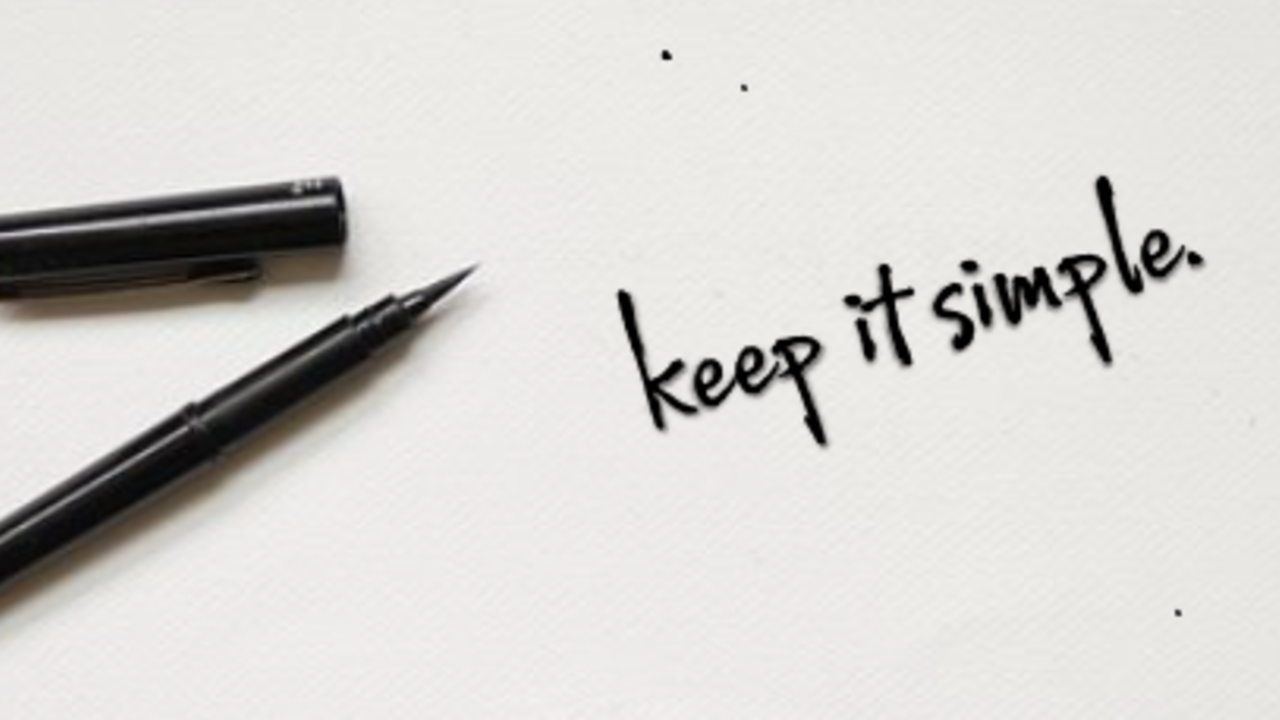 keep it simple.